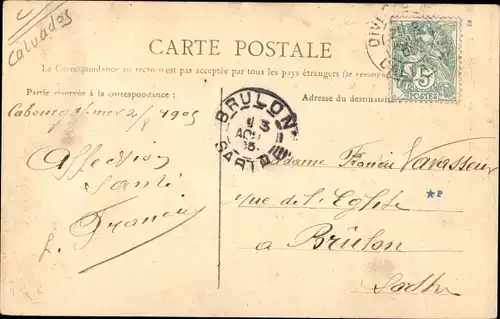 Calvados
CARTE POSTALE
La Correspondance au recto n'est pas acceptée par tous les pays étrangers (se
Partie réservée à la correspondance :
Adresse du destinataire
Cabourg s/mer 2/8 1905
Affection
Santé
Francin
BRULON
3
AOU
05
SARTHE
DIVES
5
POSTES
Madame Francin Vavasseur
rue de l'Eglise
à Brûlon
Sarthe
*P